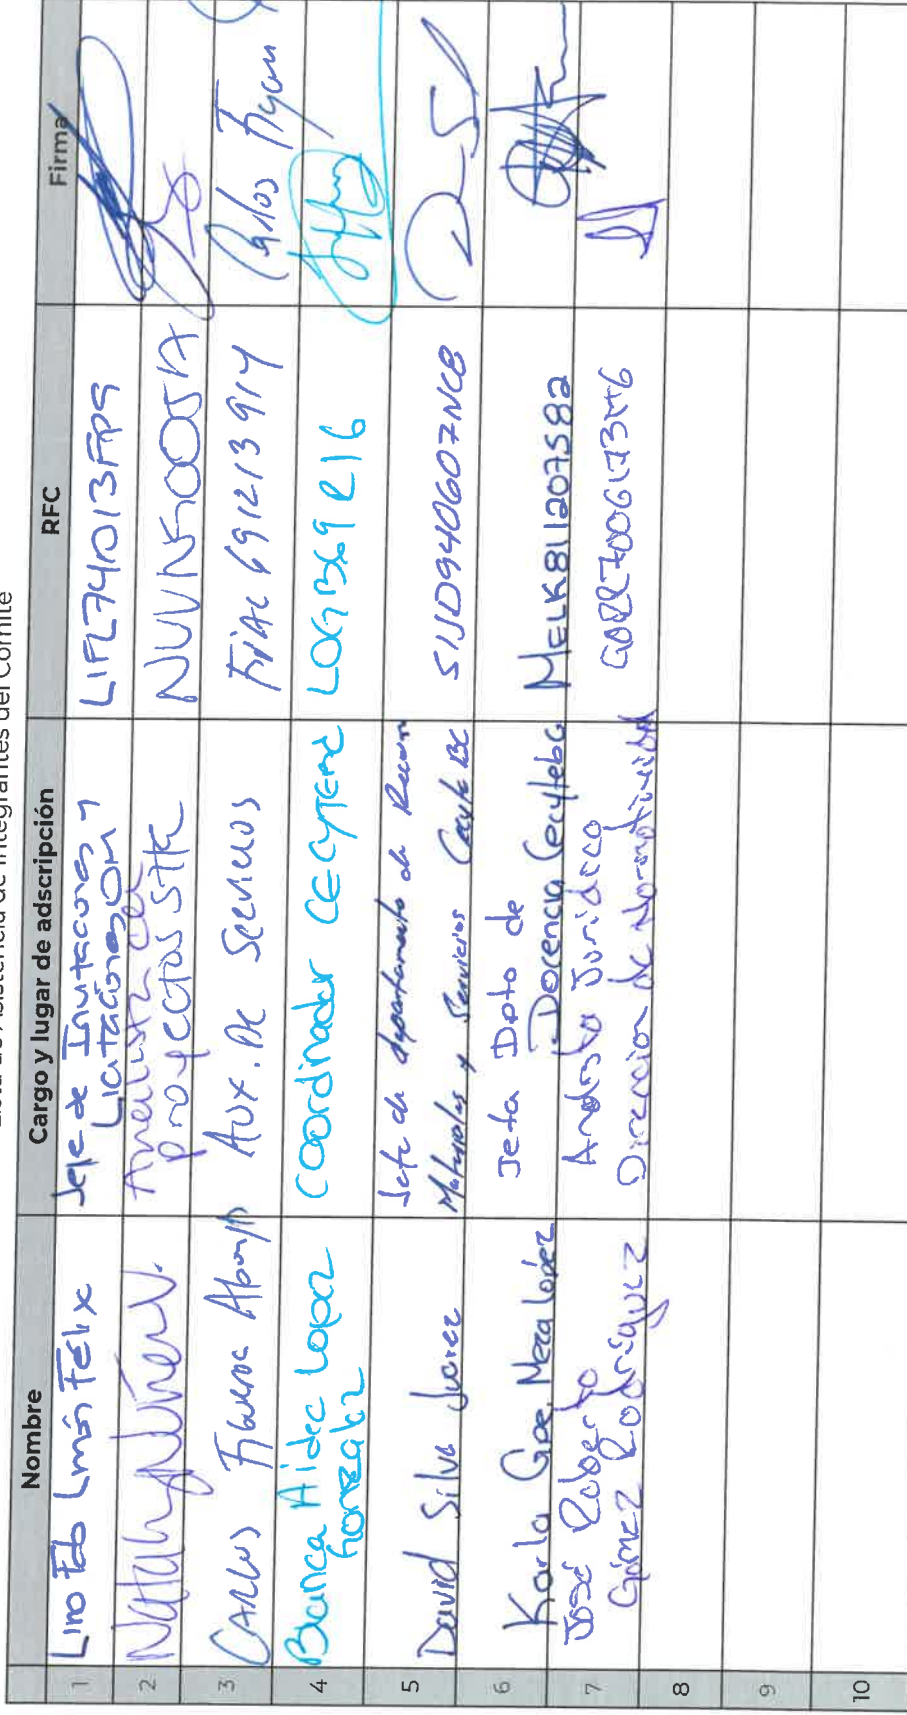 Lista de Asistencia de Integrantes del Comité
Nombre Cargo y lugar de adscripción RFC Firma
1 Lino Fdo Limón Félix Jefe de Invitaciones y
Licitaciones OM LIFL741013
2 Nataly Núñez V. Analista de
proyectos
3 CARLOS Figueroa Aux. De Servicios FIAC691213914 Carlos Figueroa
4 Blanca Aidee Lopez
Gonzalez Coordinador CECYTEBC LOGB691216
5 David Silva Juarez Jefe de departamento de Recursos
Materiales y Servicios Cecyte BC SIJD940607NC8
6 Karla Gpe. Meza López Jefa Dpto de
Docencia Cecytebc MELK811207S82
7 José Roberto
Gómez Rodríguez Analista Jurídico
Dirección de Normatividad
8
9
10